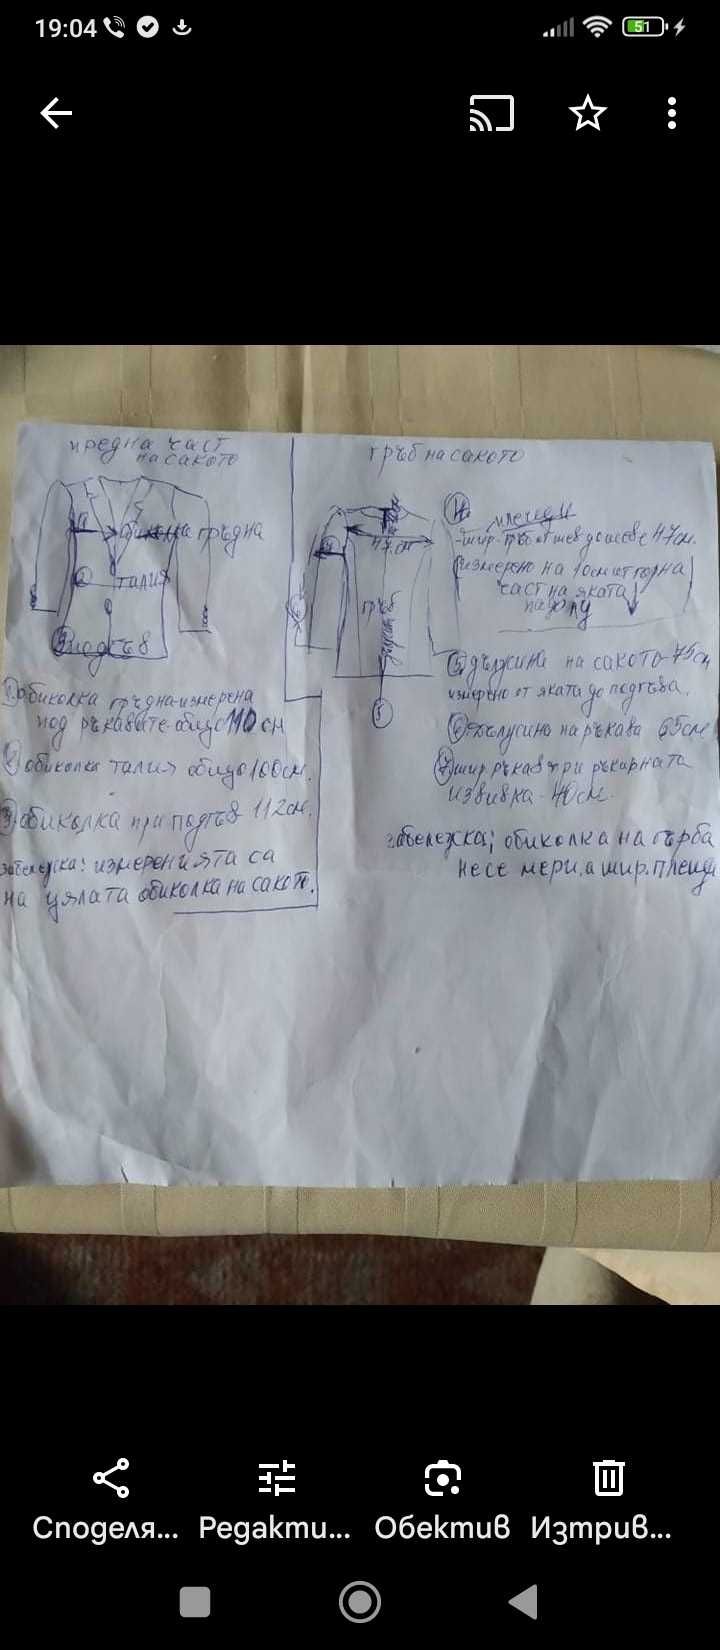 19:04
51
предна част
на сакото
1
обиколка гръдна
2
талия
3 подгъв
1 обиколка гръдна-измерена
под ръкавите-общо 110 см
2 обиколка талия общо 100см.
3 обиколка при подгъв 112см.
забележка: измеренията са
на цялата обиколка на сакото.
гръб на сакото
47см
гръб
6
5
4. плещи
-шир. гръб от шев до шев е 47см.
измерено на 10см от горна
част на яката
надолу
5. дължина на сакото-75см
измерено от яката до подгъва.
6 дължина на ръкава 65см
7 шир. ръкав при ръкавната
извивка-40см.
забележка; обиколка на гърба
не се мери, а шир. плещи
Споделя... Редакти... Обектив Изтрив...